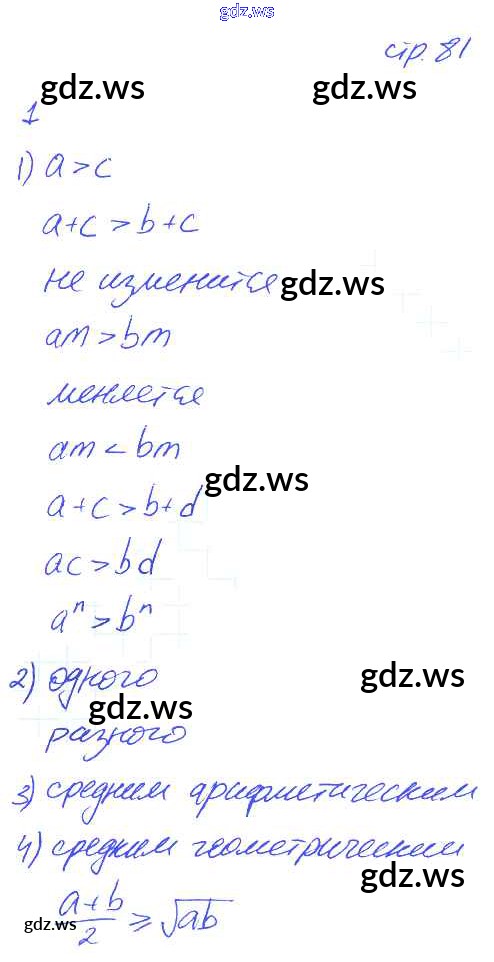 gdz.ws
стр. 81
gdz.ws gdz.ws
1
1) a > c
a+c > b+c
не изменится gdz.ws
am > bm
меняется
am < bm
gdz.ws
a+c > b+d
ac > bd
aⁿ > bⁿ
2) одного gdz.ws
gdz.ws
разного
3) средним арифметическим
4) средним геометрическим
gdz.ws
(a+b)/2 ≥ √ab
gdz.ws